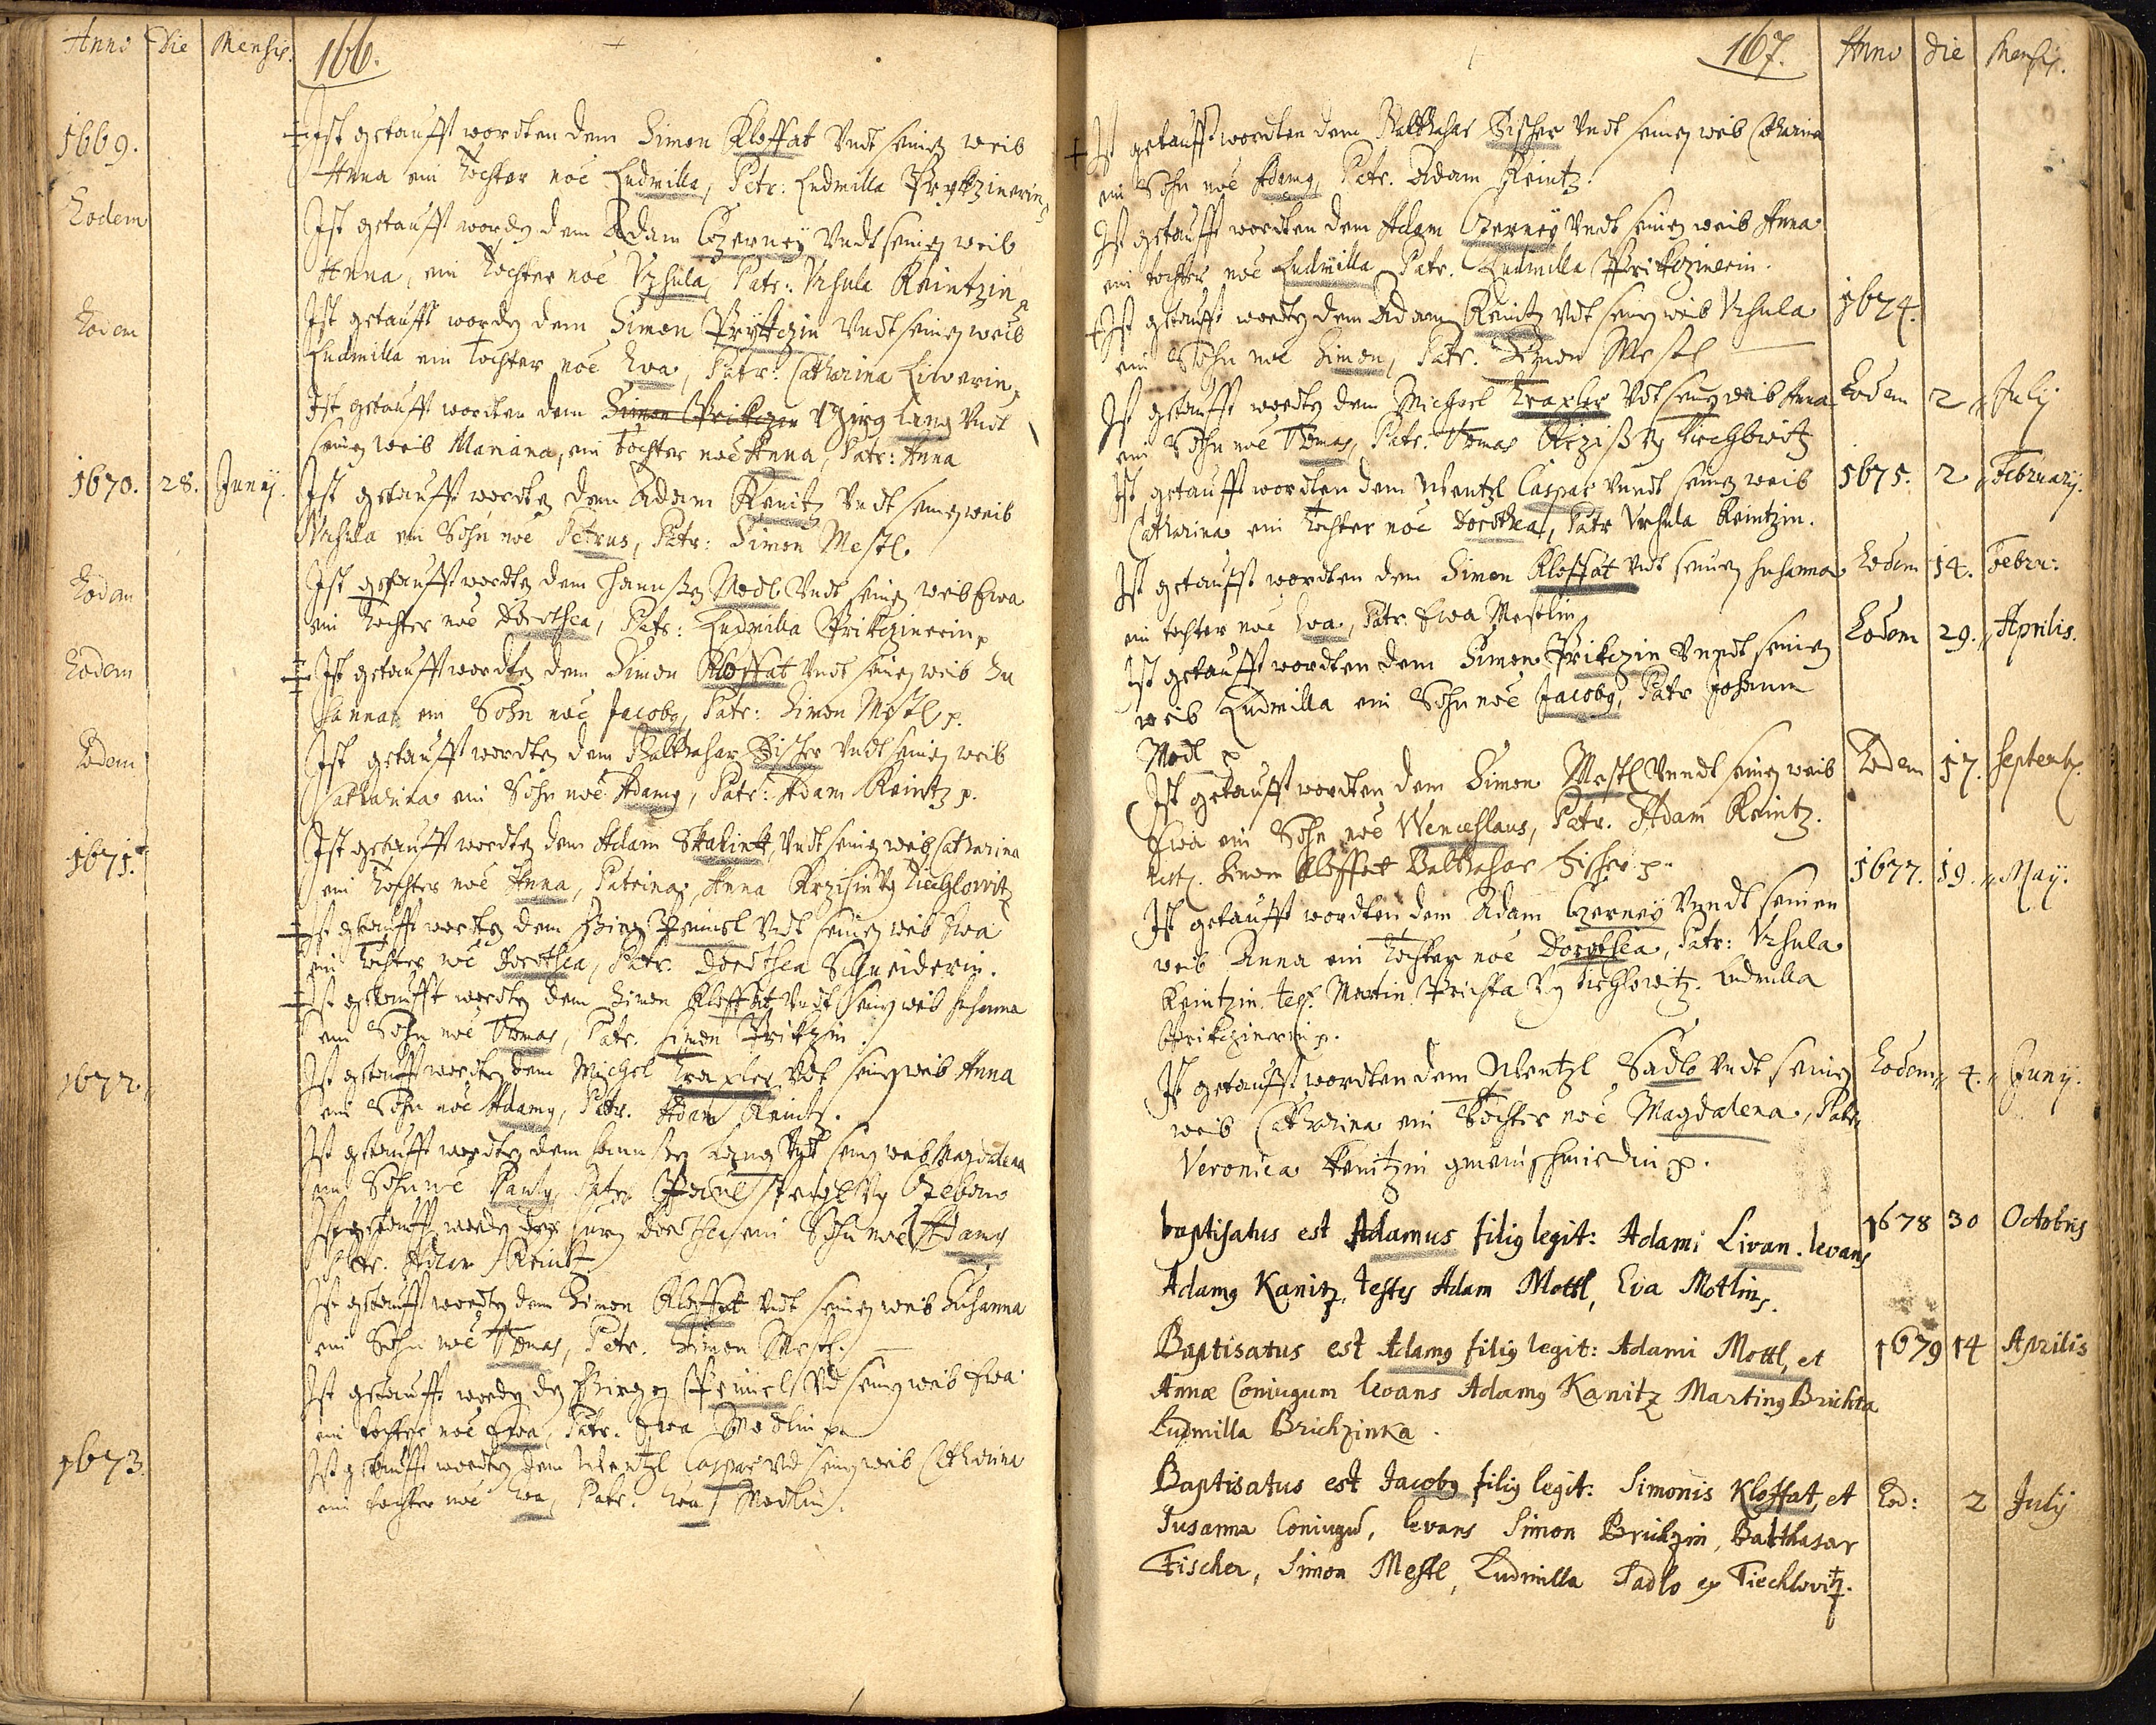 Anno Die Mensis. 166.
1669. Ist getaufft wordten dem Simon Kloffat Undt seinen weib
Anna ein Tochter noe Ludmilla, Patr: Ludmilla Prykzinerin
Eodem Ist getaufft worden dem Adam Czerney Undt seinen weib
Anna, ein Tochter noe Ursula, Patr: Ursula Keintzin
Eodem Ist getaufft worden dem Simon Prykczin Undt seinen weib
Ludmilla ein Tochter noe Eva, Patr: Catharina Liwerin
Ist getaufft wordten dem Simon Prikczin Girg Lang Undt
seinen weib Mariana, ein Tochter noe Anna, Patr: Anna
1670. 28. Junij. Ist getaufft wordten dem Adam Kenitz Undt seinen weib
Ursula ein Sohn noe Petrus, Patr: Simon Mestl.
Eodem Ist getaufft wordten dem Hannßen Modl Undt seinen weib Ewa
ein Tochter noe Dorothea, Patr: Ludmilla Prikczinerin p
Eodem Ist getaufft wordten dem Simon Kloffat Undt seinen weib Su
sanna ein Sohn noe Jacobg, Patr: Simon Mestl p.
Eodem Ist getaufft wordten dem Balthasar Fischer Undt seinen weib
Catharina ein Sohn noe Adamg, Patr: Adam Keintz p.
1671. Ist getaufft wordten dem Adam Skalink, Undt seinen weib Catharina
ein Tochter noe Anna, Patrina, Anna Tiechlowitz
Ist getaufft wordten dem Girg Pemisl Undt seinen weib Ewa
ein Tochter noe Dorothea, Patr. Dorothea Schneiderin.
Ist getaufft wordten dem Simon Kloffat Undt seinen weib Susanna
ein Sohn noe Tomas, Patr. Simon Prikzin.
1672. Ist getaufft wordten dem Michel Traxler Udt seinen weib Anna
ein Sohn noe Adamg, Patr. Adam Keintz.
Ist getaufft wordten dem Hannßen Lang Udt seinen weib Magdalena
ein Sohn noe Paulg, Patr.
Ist getaufft worden Dorothea ein Sohn noe Adamg
Patr. Adam Keintz
Ist getaufft wordten dem Simon Kloffat Undt seinen weib Susanna
ein Sohn noe Tomas, Patr. Simon Mestl.
Ist getaufft worden dem Girgen Pemisl Ud seinen weib Ewa
ein tochter noe Ewa, Patr. Ewa Modlin p.
1673. Ist getaufft wordten dem Wentzl Caspar Ud seinen weib Catharina
ein tochter noe Eva, Patr. Eva Modlin.
167. Anno Die Mensis.
Ist getaufft wordten dem Balthasar Fischer Undt seinen weib Catharina
ein Sohn noe Adamg, Patr. Adam Keintz.
Ist getaufft wordten dem Adam Czerney Undt seinen weib Anna
ein tochter noe Ludmilla, Patr. Ludmilla Prikczinerin.
Ist getaufft wordten dem Adam Keinitz Udt seinen weib Ursula 1674.
ein Sohn noe Simon, Patr. Simon Mestl
Ist getaufft wordten dem Michael Traxler Udt seinen weib Anna Eodem 2 Julij
ein Sohn noe Tomas, Patr. Tomas Tiechlowitz
Ist getaufft wordten dem Wentzl Caspar Unndt seinen weib 1675. 2 Februarij.
Catharina ein Tochter noe Dorothea, Patr Ursula Keintzin.
Ist getaufft wordten dem Simon Kloffat Undt seinen Susanna Eodem 14. Febru:
ein tochter noe Eva, Patr. Ewa Mestlin
Ist getaufft wordten dem Simon Prikczin Unndt seinen Eodem 29. Aprilis.
weib Ludmilla ein Sohn noe Jacobg, Patr Johann
Modl p
Ist getaufft wordten dem Simon Mestl Unndt seinen weib Eodem 17. Septemb.
Ewa ein Sohn noe Wenceslaus, Patr. Adam Keintz.
test. Simon Kloffat Balthasar Fischer p.
Ist getaufft wordten dem Adam Czerney Unndt seinen 1677. 19. May.
weib Anna ein Tochter noe Dorothea, Patr: Ursula
Keintzin. test. Martin Prichta Tiechlowitz. Ludmilla
Prikczinerin p.
Ist getaufft wordten dem Wentzl Sadlo Undt seinen Eodem 4. Junij.
weib Catharina ein Tochter noe Magdalena, Patr
Veronica Kenitzin p.
baptisatus est Adamus filig legit: Adami Livan. levans 1678 30 Octobris
Adamg Kanitz, testes Adam Mottl, Eva Motlin.
Baptisatus est Adamg filig legit: Adami Mottl, et 1679 14 Aprilis
Annæ Coniugum levans Adamg Kanitz Marting Brichta
Ludmilla Brichzinka.
Baptisatus est Jacobg filig legit: Simonis Kloffat, et Eod: 2 July
Susanna Coniugu, levans Simon Brichzin, Balthasar
Fischer, Simon Mestl, Ludmilla Sadlo ex Tiechlovitz.